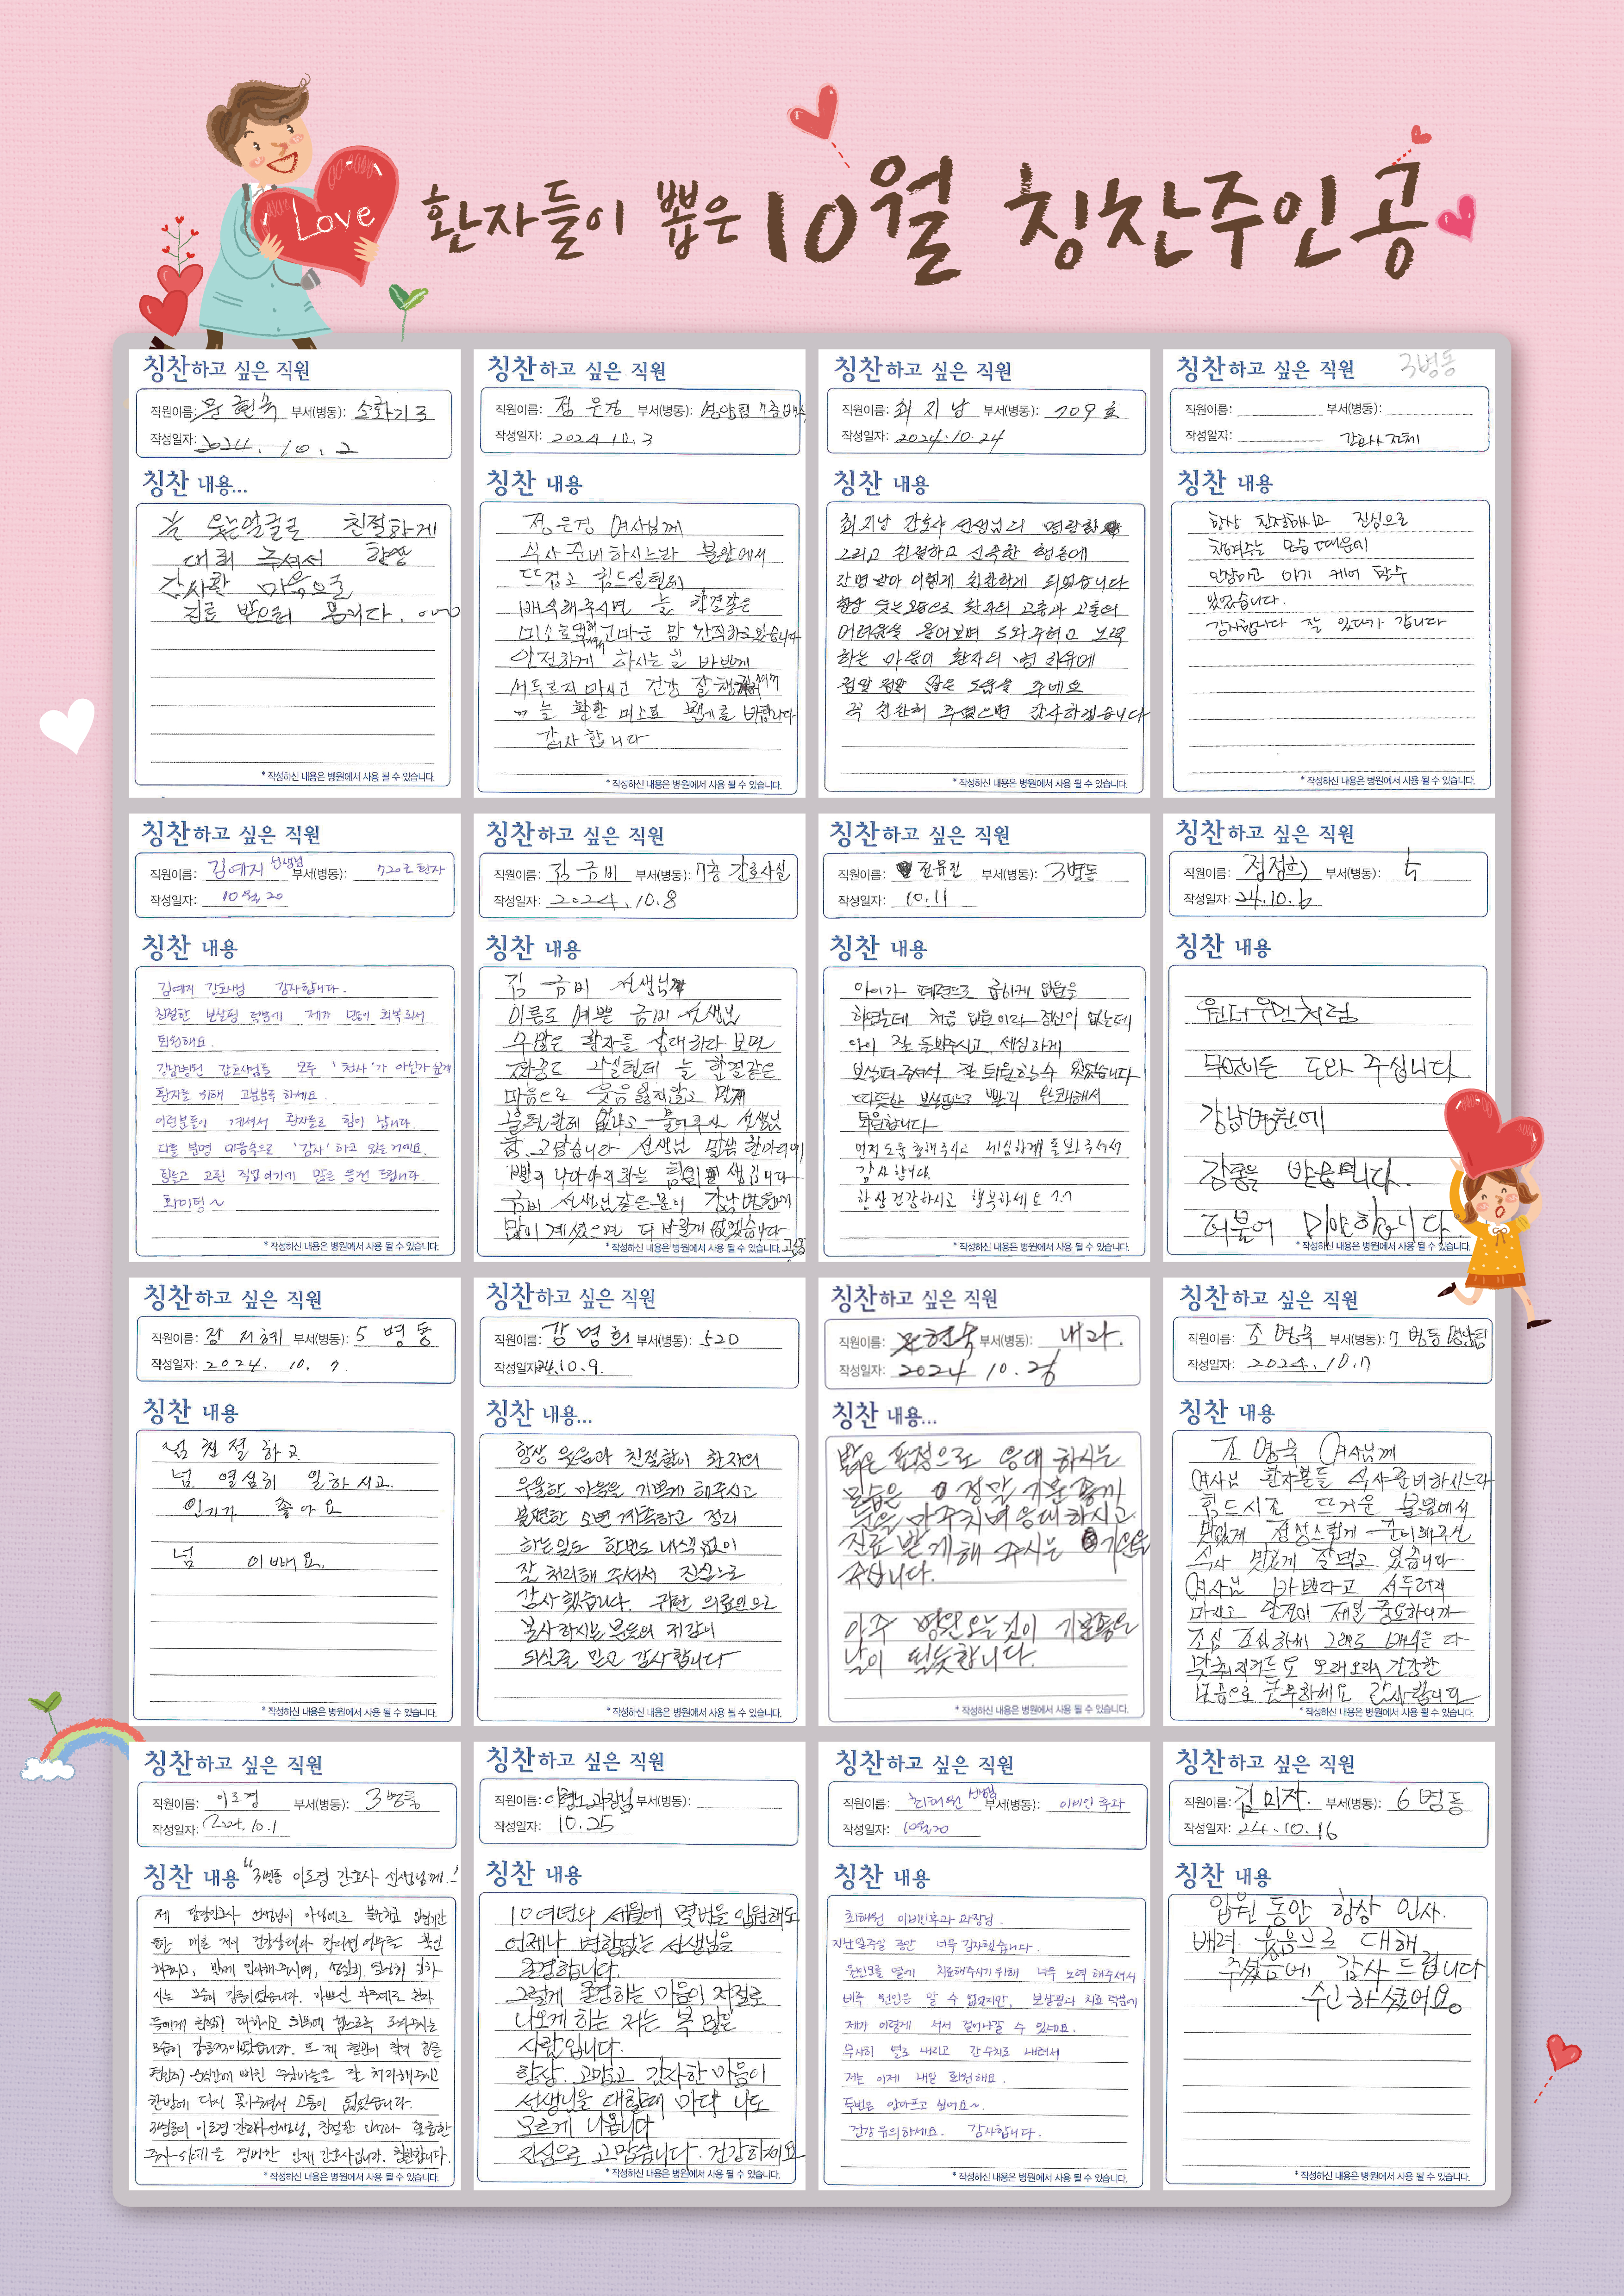 Love
환자들이 뽑은 10월 칭찬주인공
칭찬하고 싶은 직원
직원이름: 문현숙 부서(병동): 소화기 3
작성일자: 2024. 10. 2
칭찬 내용...
늘 웃는얼굴로 친절하게
대해 주셔서 항상
감사한 마음으로
진료 받으러 옵니다.
* 작성하신 내용은 병원에서 사용 될 수 있습니다.
칭찬하고 싶은 직원
직원이름: 정은경 부서(병동): 영양팀 7층
작성일자: 2024 10. 3
칭찬 내용
정은경 여사님께
식사 준비하시느라 불앞에서
뜨겁고 힘드실텐데
배식해주시면 늘 한결같은
미소로 고마운 맘 간직하고 있습니다
안전하게 하시는 일 바쁘게
서두르지 마시고 건강 잘
늘 환한 미소로 뵙기를 바랍니다
감사 합니다
* 작성하신 내용은 병원에서 사용 될 수 있습니다.
칭찬하고 싶은 직원
직원이름: 최지남 부서(병동): 709호
작성일자: 2024. 10. 24
칭찬 내용
최지남 간호사 선생님의 명랑함
그리고 친절하고 신속한 행동에
감명 받아 이렇게 칭찬하게 되었습니다
항상 웃는 모습으로 환자의 고충과 고통의
어려움을 물어보며 도와주려고 노력
하는 마음이 환자의 병 치유에
정말 정말 많은 도움을 주네요
꼭 칭찬해 주셨으면 감사하겠습니다
* 작성하신 내용은 병원에서 사용 될 수 있습니다.
칭찬하고 싶은 직원 3병동
직원이름: 부서(병동):
작성일자: 간호사 전체
칭찬 내용
항상 친절하시고 진심으로
대해주는 모습 때문에
안심하고 아기 케어 할수
있었습니다.
감사합니다 잘 있다가 갑니다
* 작성하신 내용은 병원에서 사용 될 수 있습니다.
칭찬하고 싶은 직원
직원이름: 김예지 선생님 부서(병동): 720호 환자
작성일자: 10월 20
칭찬 내용
김예지 간호사님 감사합니다.
친절한 보살핌 덕분에 제가 많이 회복되서
퇴원해요.
강남병원 간호사님들 모두 '천사'가 아닌가 싶게
환자를 위해 고분분투 하세요.
이런분들이 계셔서 환자들은 힘이 납니다.
다들 분명 마음속으로 '감사' 하고 있는거예요.
힘들고 고된 직업이기에 많은 응원 드립니다.
화이팅~
* 작성하신 내용은 병원에서 사용 될 수 있습니다.
칭찬하고 싶은 직원
직원이름: 김금비 부서(병동): 7층 간호사실
작성일자: 2024. 10. 8
칭찬 내용
김금비 선생님께
이름도 예쁜 금비 선생님
수많은 환자들 상대하다 보면
짜증도 나실텐데 늘 한결같은
마음으로 웃음 잃지않고 먼저
불편한데 없냐고 물어주신 선생님
참 고맙습니다 선생님 말씀 한마디에
빨리 나아야겠다는 힘이 생깁니다
금비 선생님같은 분이 강남병원에
많이 계셨으면 더 바랄게 없겠습니다
* 작성하신 내용은 병원에서 사용 될 수 있습니다.
칭찬하고 싶은 직원
직원이름: 진유진 부서(병동): 3병동
작성일자: 10. 11
칭찬 내용
아이가 폐렴으로 급하게 입원을
하였는데 처음 입원이라 정신이 없는데
아이 잘 돌봐주시고, 세심하게
보살펴주셔서 잘 퇴원할수 있었습니다
따뜻한 보살핌으로 빨리 완쾌해서
퇴원합니다
먼저 도움 청해주시고 세심하게 돌봐주셔서
감사 합니다.
항상 건강하시고 행복하세요 ^.^
* 작성하신 내용은 병원에서 사용 될 수 있습니다.
칭찬하고 싶은 직원
직원이름: 정정희 부서(병동): 5
작성일자: 24. 10. 6
칭찬 내용
원더우먼처럼
무엇이든 도와 주십니다
강남병원에
감동을 받습니다.
더불어 미안합니다
* 작성하신 내용은 병원에서 사용 될 수 있습니다.
칭찬하고 싶은 직원
직원이름: 장지혜 부서(병동): 5 병동
작성일자: 2024. 10. 7.
칭찬 내용
넘 친절하고
넘 열심히 일하시고
인기가 좋아요
넘 이뻐요.
* 작성하신 내용은 병원에서 사용 될 수 있습니다.
칭찬하고 싶은 직원
직원이름: 강명희 부서(병동): 520
작성일자: 24.10.9.
칭찬 내용...
항상 웃음과 친절함이 환자의
우울한 마음을 기쁘게 해주시고
불편한 소변 계속하고 정리
하는일도 한번도 내색없이
잘 처리해 주셔서 진심으로
감사했습니다. 귀한 의료인으로
봉사하시는 분들의 귀감이
되실줄 믿고 감사합니다
* 작성하신 내용은 병원에서 사용 될 수 있습니다.
칭찬하고 싶은 직원
직원이름: 문현숙 부서(병동): 내과.
작성일자: 2024 10. 26
칭찬 내용...
밝은 표정으로 응대 하시는
모습은 정말 기분 좋게
눈을 마주치며 응대하시고
진료 받게 해 주시는 기운을
줍니다.
아주 병원오는것이 기분좋은
날이 될듯합니다.
* 작성하신 내용은 병원에서 사용 될 수 있습니다.
칭찬하고 싶은 직원
직원이름: 조영숙 부서(병동): 7 병동 영양팀
작성일자: 2024. 10. 7
칭찬 내용
조영숙 여사님께
여사님 환자분들 식사준비하시느라
힘드시죠 뜨거운 불옆에서
맛있게 정성스럽게 준비해주신
식사 맛있게 잘먹고 있습니다
여사님 바쁘다고 서두르지
마시고 안전이 제일 중요하니까
조심 조심하세 그래도 배식은 다
맞춰지거든요 오래오래 건강한
모습으로 근무하세요 감사합니다
* 작성하신 내용은 병원에서 사용 될 수 있습니다.
칭찬하고 싶은 직원
직원이름: 이로경 부서(병동): 3병동
작성일자: 2024. 10. 1
칭찬 내용 "3병동 이로경 간호사 선생님께.."
제 담당간호사 선생님이 아님에도 불구하고 입원기간
동안 매일 저의 건강상태와 컨디션 여부를 확인
해주시고, 밝게 인사해주시며, 성실히 열심히 일하
시는 모습이 감동이었습니다. 바쁘신 와중에도 환자
들에게 친절히 대하시고 회복에 힘쓰도록 도와주시는
모습이 감동적이었습니다. 또 제 혈관이 작아 힘든
한번에 다시 꽂아주셔서 고통이 없었습니다.
3병동의 이로경 간호사선생님, 친절한 인성과 훌륭한
주사 스킬을 겸비한 인재 간호사입니다. 칭찬합니다.
* 작성하신 내용은 병원에서 사용 될 수 있습니다.
칭찬하고 싶은 직원
직원이름: 이형노 과장님 부서(병동):
작성일자: 10. 25
칭찬 내용
10여년의 세월에 몇번을 입원해도
언제나 변함없는 선생님을
존경합니다.
그렇게 존경하는 마음이 저절로
나오게 하는 저는 복 많은
사람입니다.
항상. 고맙고 감사한 마음이
선생님을 대할때 마다 나도
모르게 나옵니다
진심으로 고맙습니다. 건강하세요
* 작성하신 내용은 병원에서 사용 될 수 있습니다.
칭찬하고 싶은 직원
직원이름: 최태원 선생님 부서(병동): 이비인후과
작성일자: 10월 20
칭찬 내용
최태원 이비인후과 과장님.
지난 일주일 동안 너무 감사했습니다.
원인모를 열에 치료해주시기 위해 너무 노력 해주셔서
비록 원인은 알 수 없었지만, 보살핌과 치료 덕분에
제가 이렇게 서서 걸어나갈 수 있네요.
무사히 열도 내리고 간수치도 내려서
저는 이제 내일 퇴원해요.
두번은 안아프고 싶어요~.
건강 유의하세요. 감사합니다.
* 작성하신 내용은 병원에서 사용 될 수 있습니다.
칭찬하고 싶은 직원
직원이름: 김미자. 부서(병동): 6 병동
작성일자: 24. 10. 16
칭찬 내용
입원 동안 항상 인사.
배려. 웃음으로 대해
주셨음에 감사 드립니다.
수고하셨어요.
* 작성하신 내용은 병원에서 사용 될 수 있습니다.